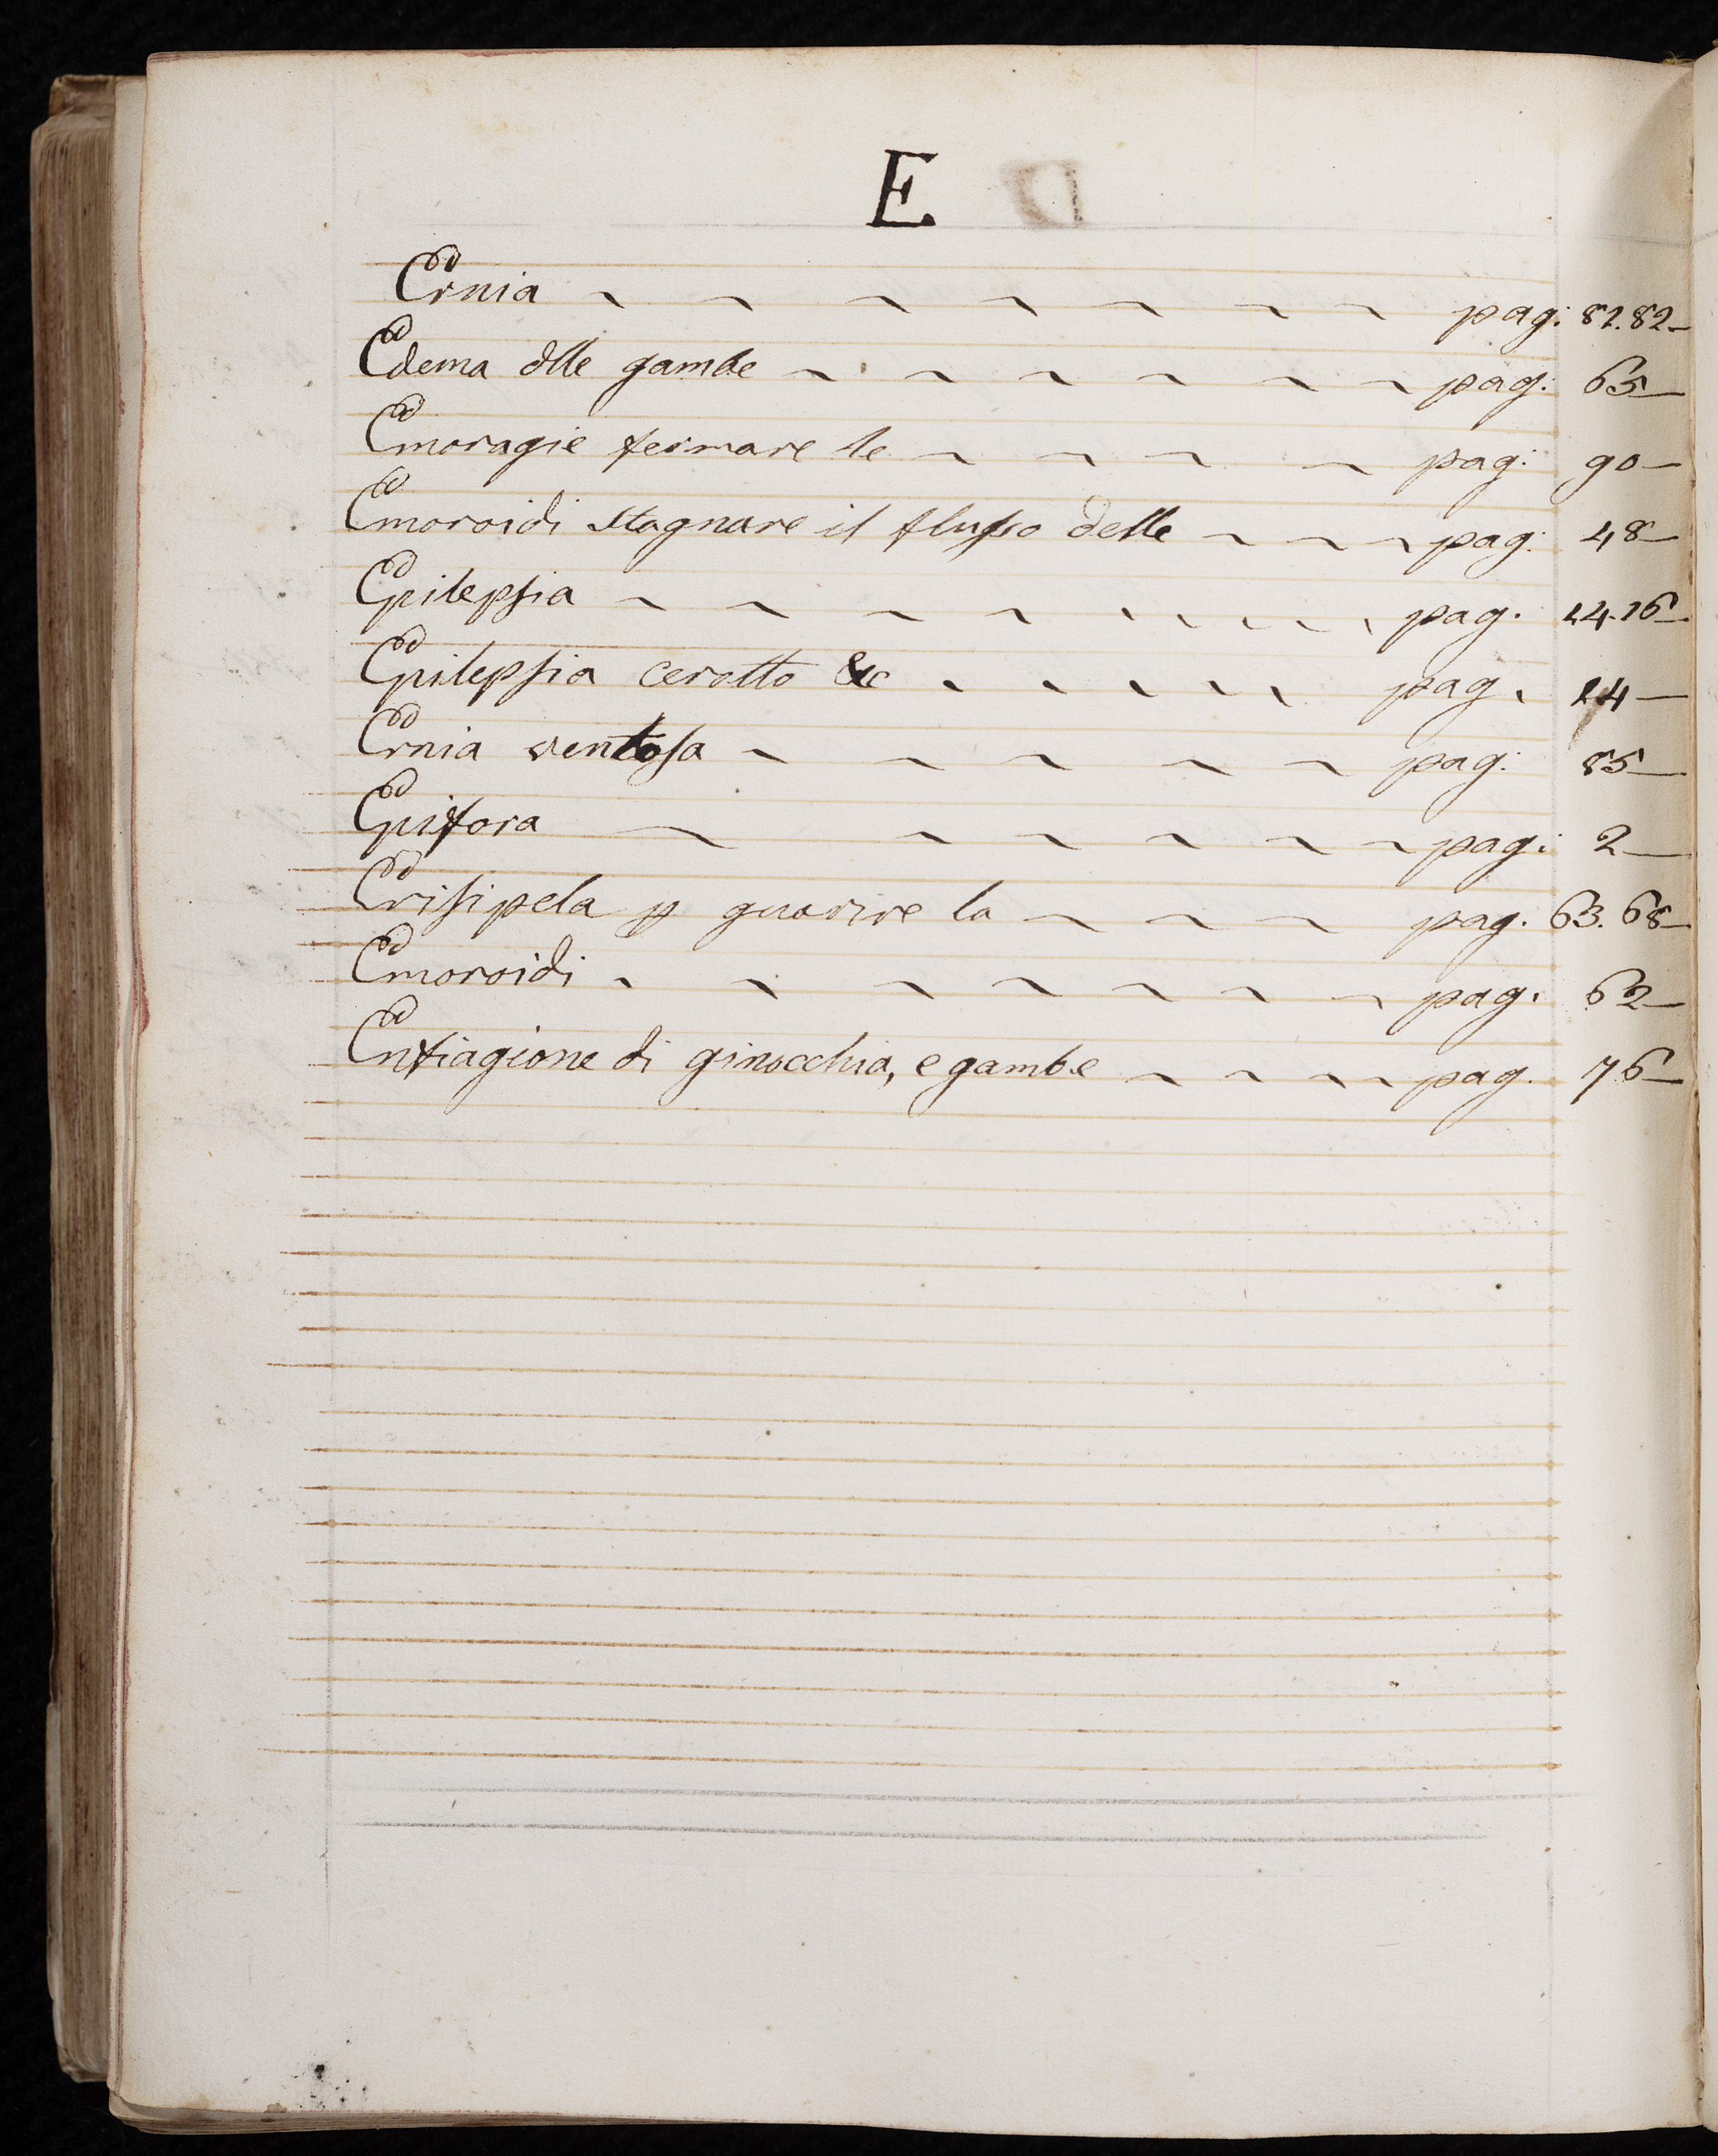 E
Ernia ~ ~ ~ ~ ~ ~ ~ pag: 81.82_
Edema dlle gambe ~ ~ ~ ~ ~ ~ pag: 65_
Emoragie fermare le ~ ~ ~ ~ pag: 90_
Emoroidi stagnare il flusso delle ~ ~ ~ pag: 48_
Epilepsia ~ ~ ~ ~ ~ ~ ~ ~ ~ pag. 14.16_
Epilepsia cerotto &c ~ ~ ~ ~ ~ pag. 14_
Ernia ventosa ~ ~ ~ ~ ~ pag: 85_
Epifora ~ ~ ~ ~ ~ ~ pag: 2_
Erisipela p guarire la ~ ~ ~ pag. 63.68_
Emoroidi ~ ~ ~ ~ ~ ~ ~ pag. 62_
Enfiagione di ginocchia, e gambe ~ ~ ~ ~ pag. 76_